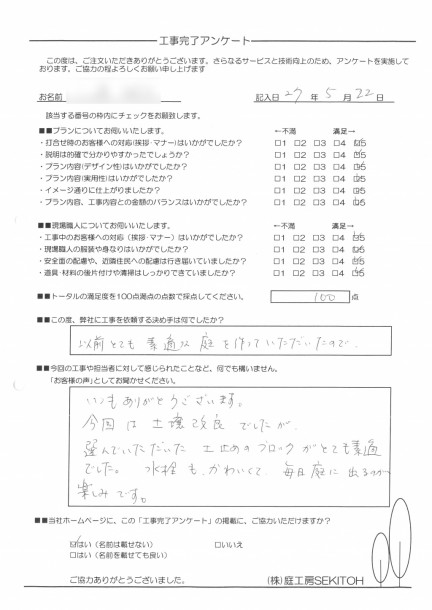 工事完了アンケート
この度は、ご注文いただきありがとうございます。さらなるサービスと技術向上のため、アンケートを実施して
おります。ご協力の程よろしくお願い申し上げます
お名前 記入日 27 年 5 月 22 日
該当する番号の枠内にチェックをお願いします。
■■プランについてお伺いいたします。 ←不満 満足→
・打合せ時のお客様への対応(挨拶・マナー)はいかがでしたか? □1 □2 □3 □4 ☑5
・説明は的確で分かりやすかったでしょうか? □1 □2 □3 □4 ☑5
・プラン内容(デザイン性)はいかがでしたか? □1 □2 □3 □4 ☑5
・プラン内容(実用性)はいかがでしたか? □1 □2 □3 □4 ☑5
・イメージ通りに仕上がりましたか? □1 □2 □3 □4 ☑5
・プラン内容、工事内容との金額のバランスはいかがでしたか? □1 □2 □3 □4 ☑5
■■現場職人についてお伺いいたします。 ←不満 満足→
・工事中のお客様への対応(挨拶・マナー)はいかがでしたか? □1 □2 □3 □4 ☑5
・現場職人の服装や身なりはいかがでしたか? □1 □2 □3 □4 ☑5
・安全面の配慮や、近隣住民への配慮は行き届いていましたか? □1 □2 □3 □4 ☑5
・道具・材料の後片付けや清掃はしっかりできていましたか? □1 □2 □3 □4 ☑5
■■トータルの満足度を100点満点の点数で採点してください。 100 点
■■この度、弊社に工事を依頼する決め手は何でしたか?
以前とても素適な庭を作っていただいたので。
■■今回の工事や担当者に対して感じられたことなど、何でも構いません。
「お客様の声」としてお聞かせください。
いつもありがとうございます。
今回は土壌改良でしたが、
選んでいただいた土止めのブロックがとても素適
でした。水栓も、かわいくて、毎日庭に出るのが
楽しみです。
■■当社ホームページに、この「工事完了アンケート」の掲載に、ご協力いただけますか?
☑はい(名前は載せない) □いいえ
□はい(名前を載せても良い)
ご協力ありがとうございました。 (株)庭工房SEKITOH